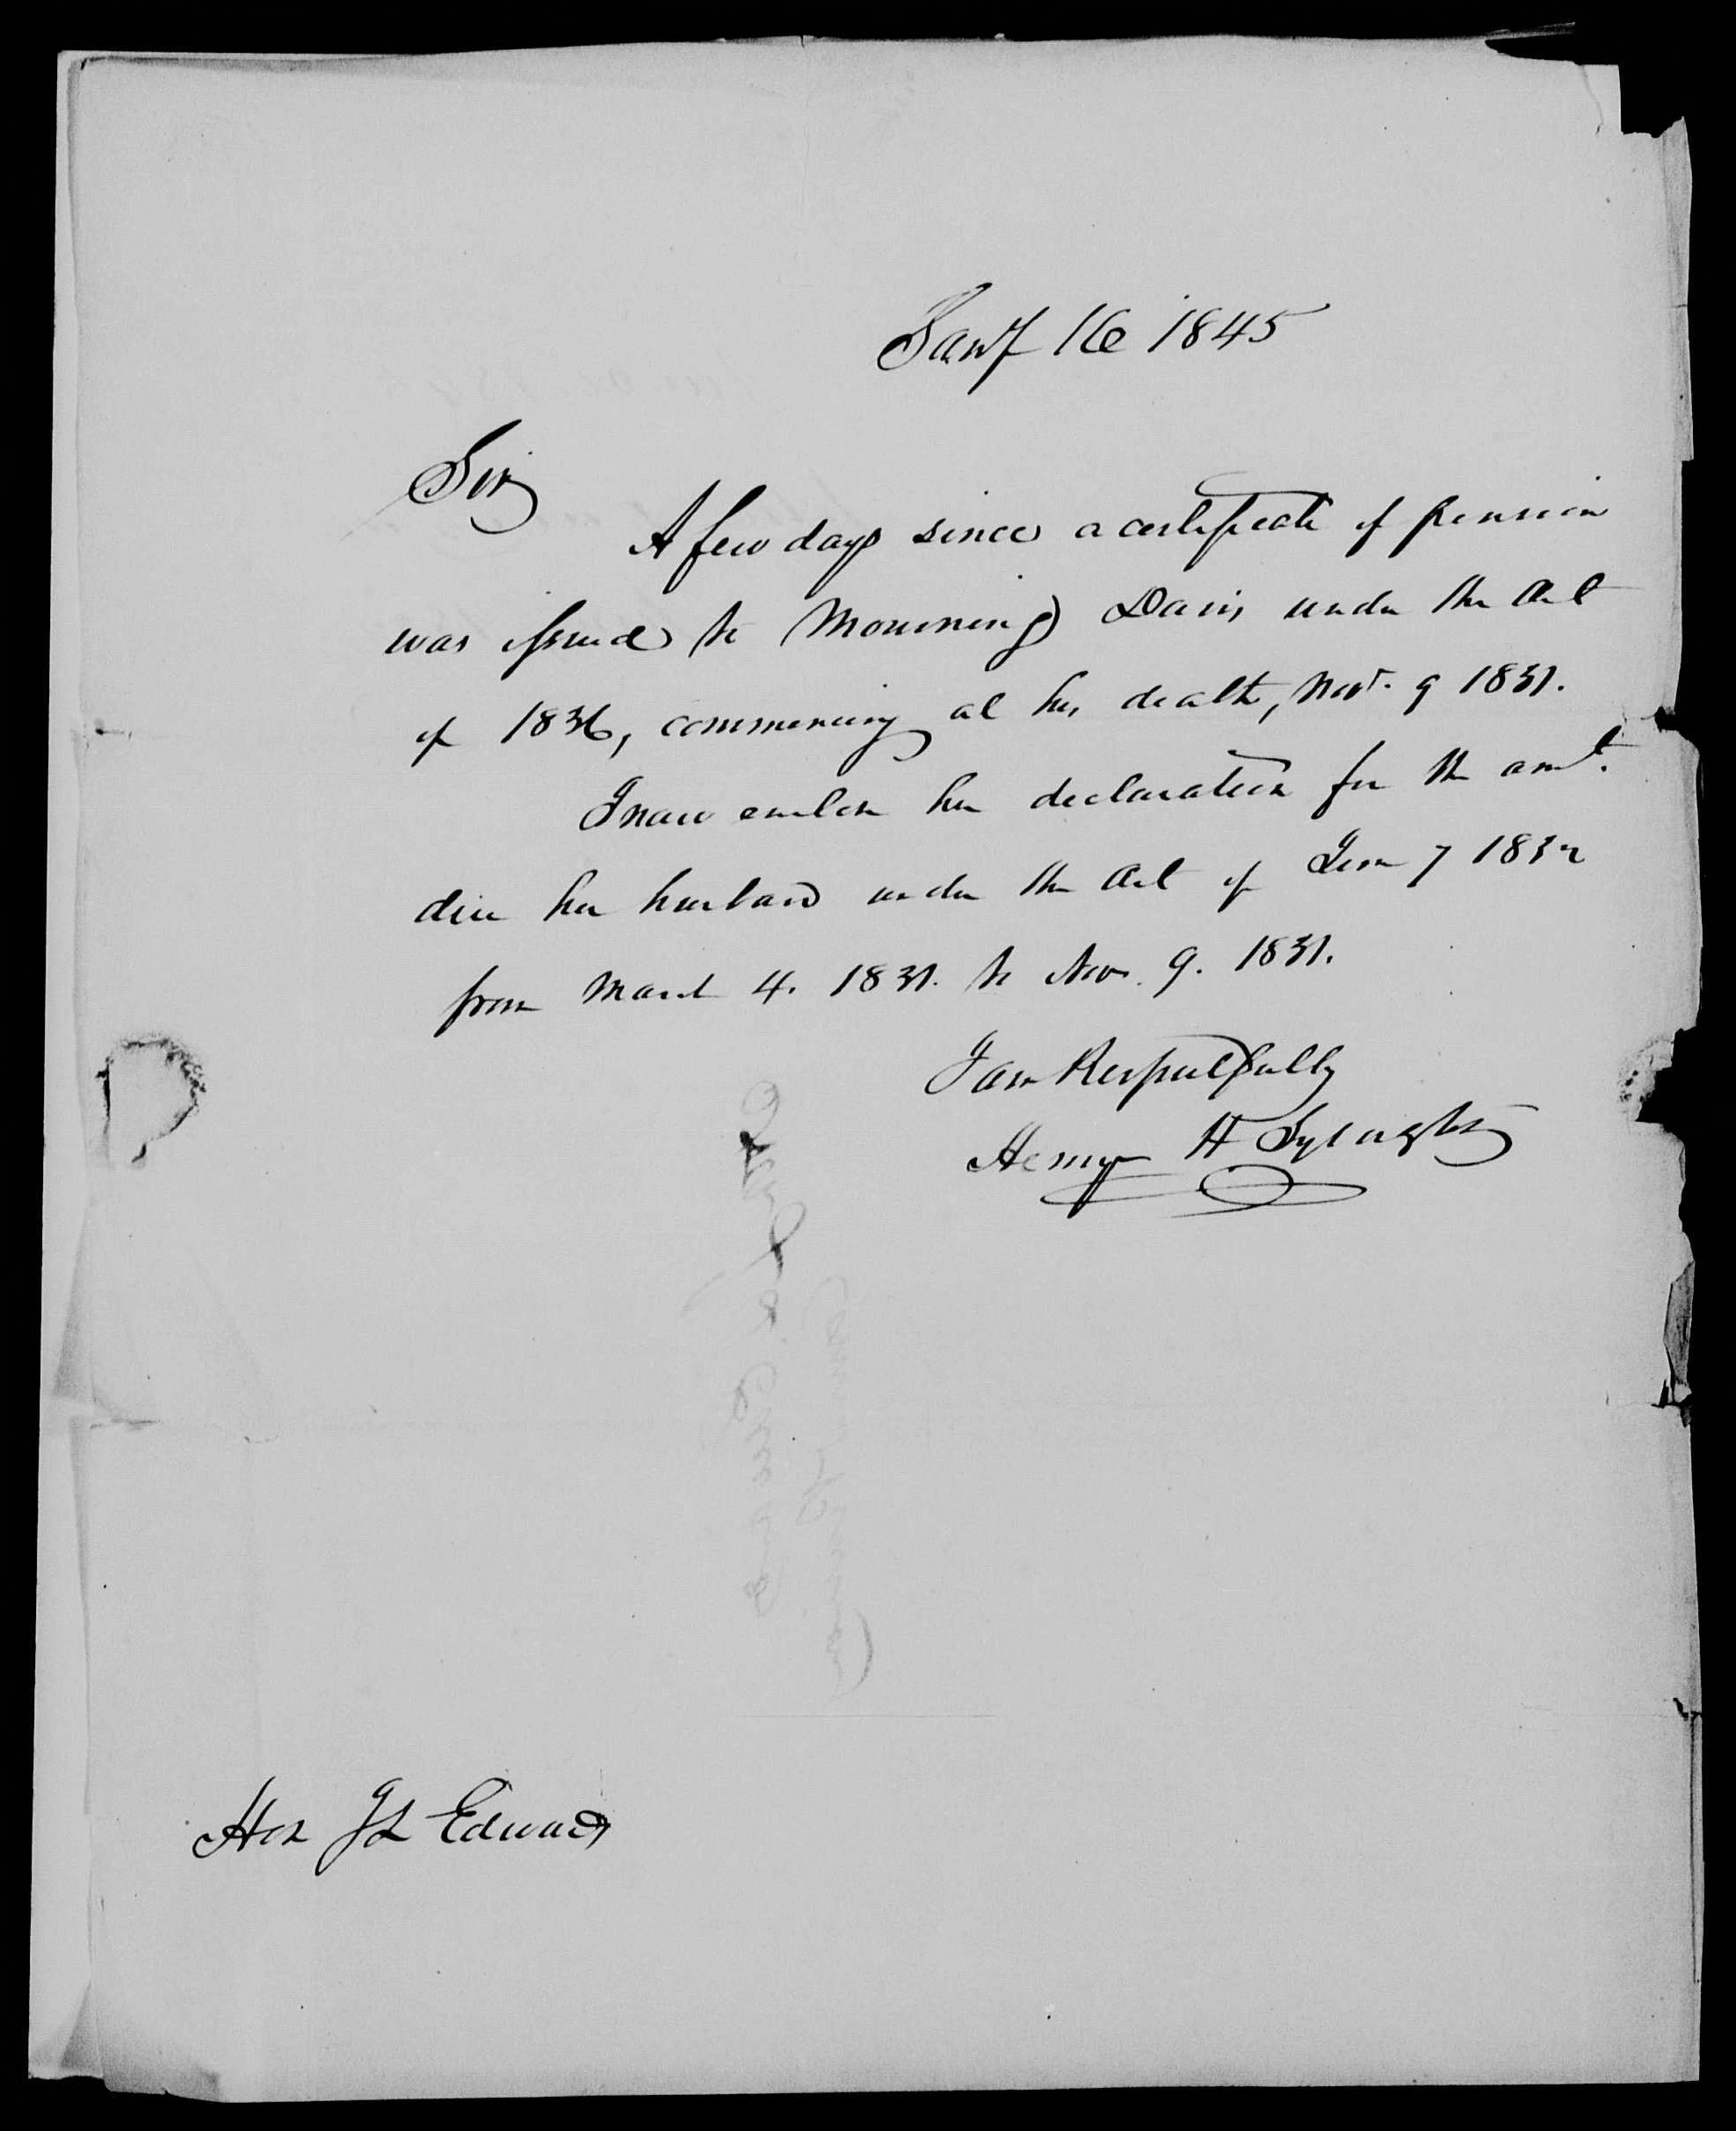 Jany 16 1845
Sir
A few days since a certificate of pension
was issued to Mourning Davis under the Act
of 1836, commencing at his death, Novr. 9 1831.
I now enclose her declaration for the amt.
due her husband under the Act of June 7 1832
from March 4. 1831. to Nov. 9. 1831.
I am Respectfully
Henry H Sylvester
Hon J L Edwards